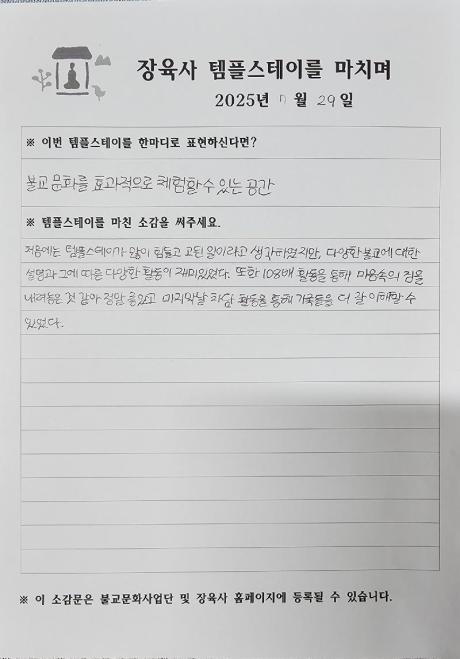 장육사 템플스테이를 마치며
2025년 7월 29일
※ 이번 템플스테이를 한마디로 표현하신다면?
불교 문화를 효과적으로 체험할 수 있는 공간
※ 템플스테이를 마친 소감을 써주세요.
처음에는 템플스테이가 많이 힘들고 고된 일이라고 생각하였지만, 다양한 불교에 대한
설명과 그에 따른 다양한 활동이 재미있었다. 또한 108배 활동을 통해 마음속의 짐을
내려놓은 것 같아 정말 좋았고 마지막날 차담 활동을 통해 가족들을 더 잘 이해할 수
있었다.
※ 이 소감문은 불교문화사업단 및 장육사 홈페이지에 등록될 수 있습니다.